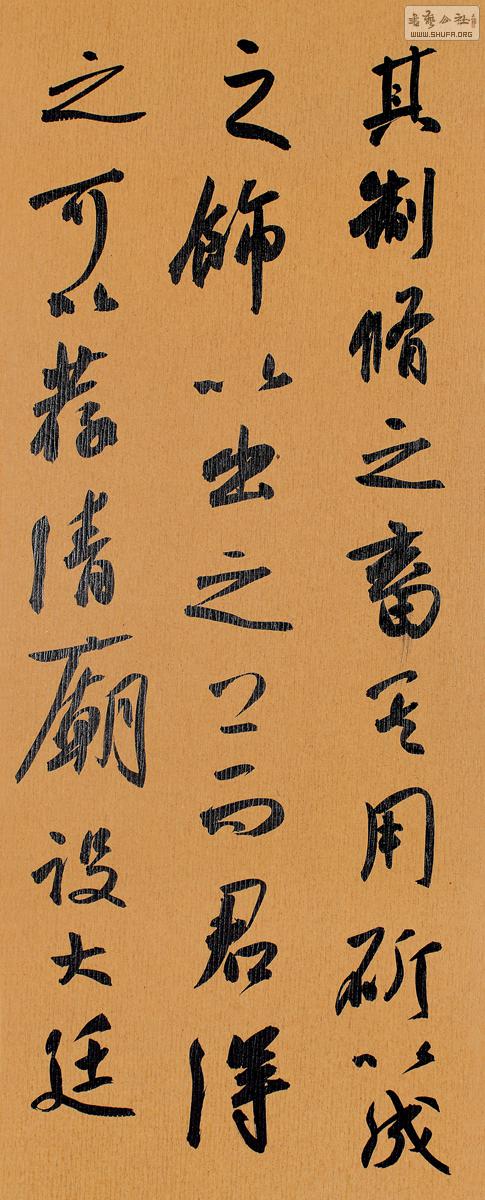 其制脩之畜其用斫以成
之飾以出之上而君得
之可以荐清廟設大廷
书艺公社
WWW.SHUFA.ORG